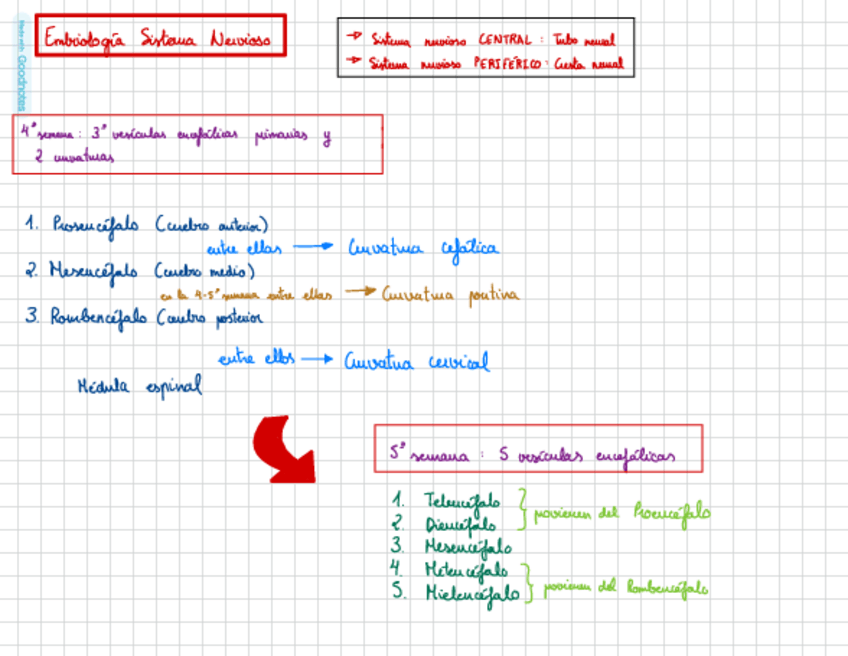 Made with Goodnotes
Embriología Sistema Nervioso
→ Sistema nervioso CENTRAL : Tubo neural
→ Sistema nervioso PERIFÉRICO : Cresta neural
4ª semana : 3ª vesículas encefálicas primarias y
2 curvaturas
1. Prosencéfalo (cerebro anterior)
entre ellas → Curvatura cefálica
2. Mesencéfalo (cerebro medio)
en la 4-5ª semana entre ellas → Curvatura pontina
3. Rombencéfalo (cerebro posterior
entre ellos → Curvatura cervical
Médula espinal
5ª semana : 5 vesículas encefálicas
1. Telencéfalo
2. Diencéfalo
provienen del Proencéfalo
3. Mesencéfalo
4. Metencéfalo
5. Mielencéfalo
provienen del Rombencéfalo